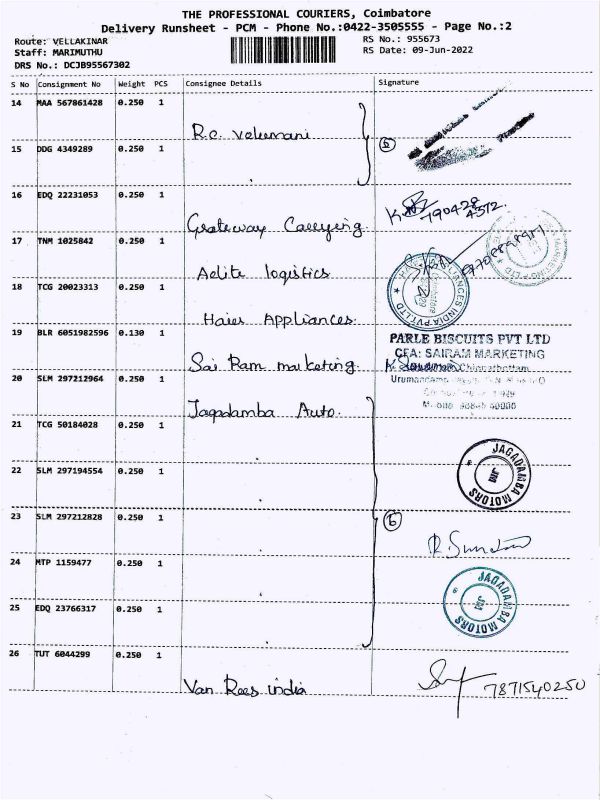 THE PROFESSIONAL COURIERS, Coimbatore
Delivery Runsheet - PCM - Phone No.:0422-3505555 - Page No.:2
Route: VELLAKINAR
Staff: MARIMUTHU
DRS No.: DCJB95567302
RS No.: 955673
RS Date: 09-Jun-2022
S No Consignment No Weight PCS Consignee Details Signature
14 MAA 567861428 0.250 1
R.C. Velumani
15 DDG 4349289 0.250 1
16 EDQ 22231053 0.250 1
Gateway Carrying.
17 TNM 1025842 0.250 1
Aelite logistics
18 TCG 20023313 0.250 1
Haier Appliances.
19 BLR 6051982596 0.130 1
Sai Ram marketing.
PARLE BISCUITS PVT LTD
CFA: SAIRAM MARKETING
20 SLM 297212964 0.250 1
Jagadamba Auto.
21 TCG 50184028 0.250 1
JAGADAMBA MOTORS
22 SLM 297194554 0.250 1
23 SLM 297212828 0.250 1
24 MTP 1159477 0.250 1
JAGADAMBA MOTORS
25 EDQ 23766317 0.250 1
26 TUT 6044299 0.250 1
Van Rees india
7871540250